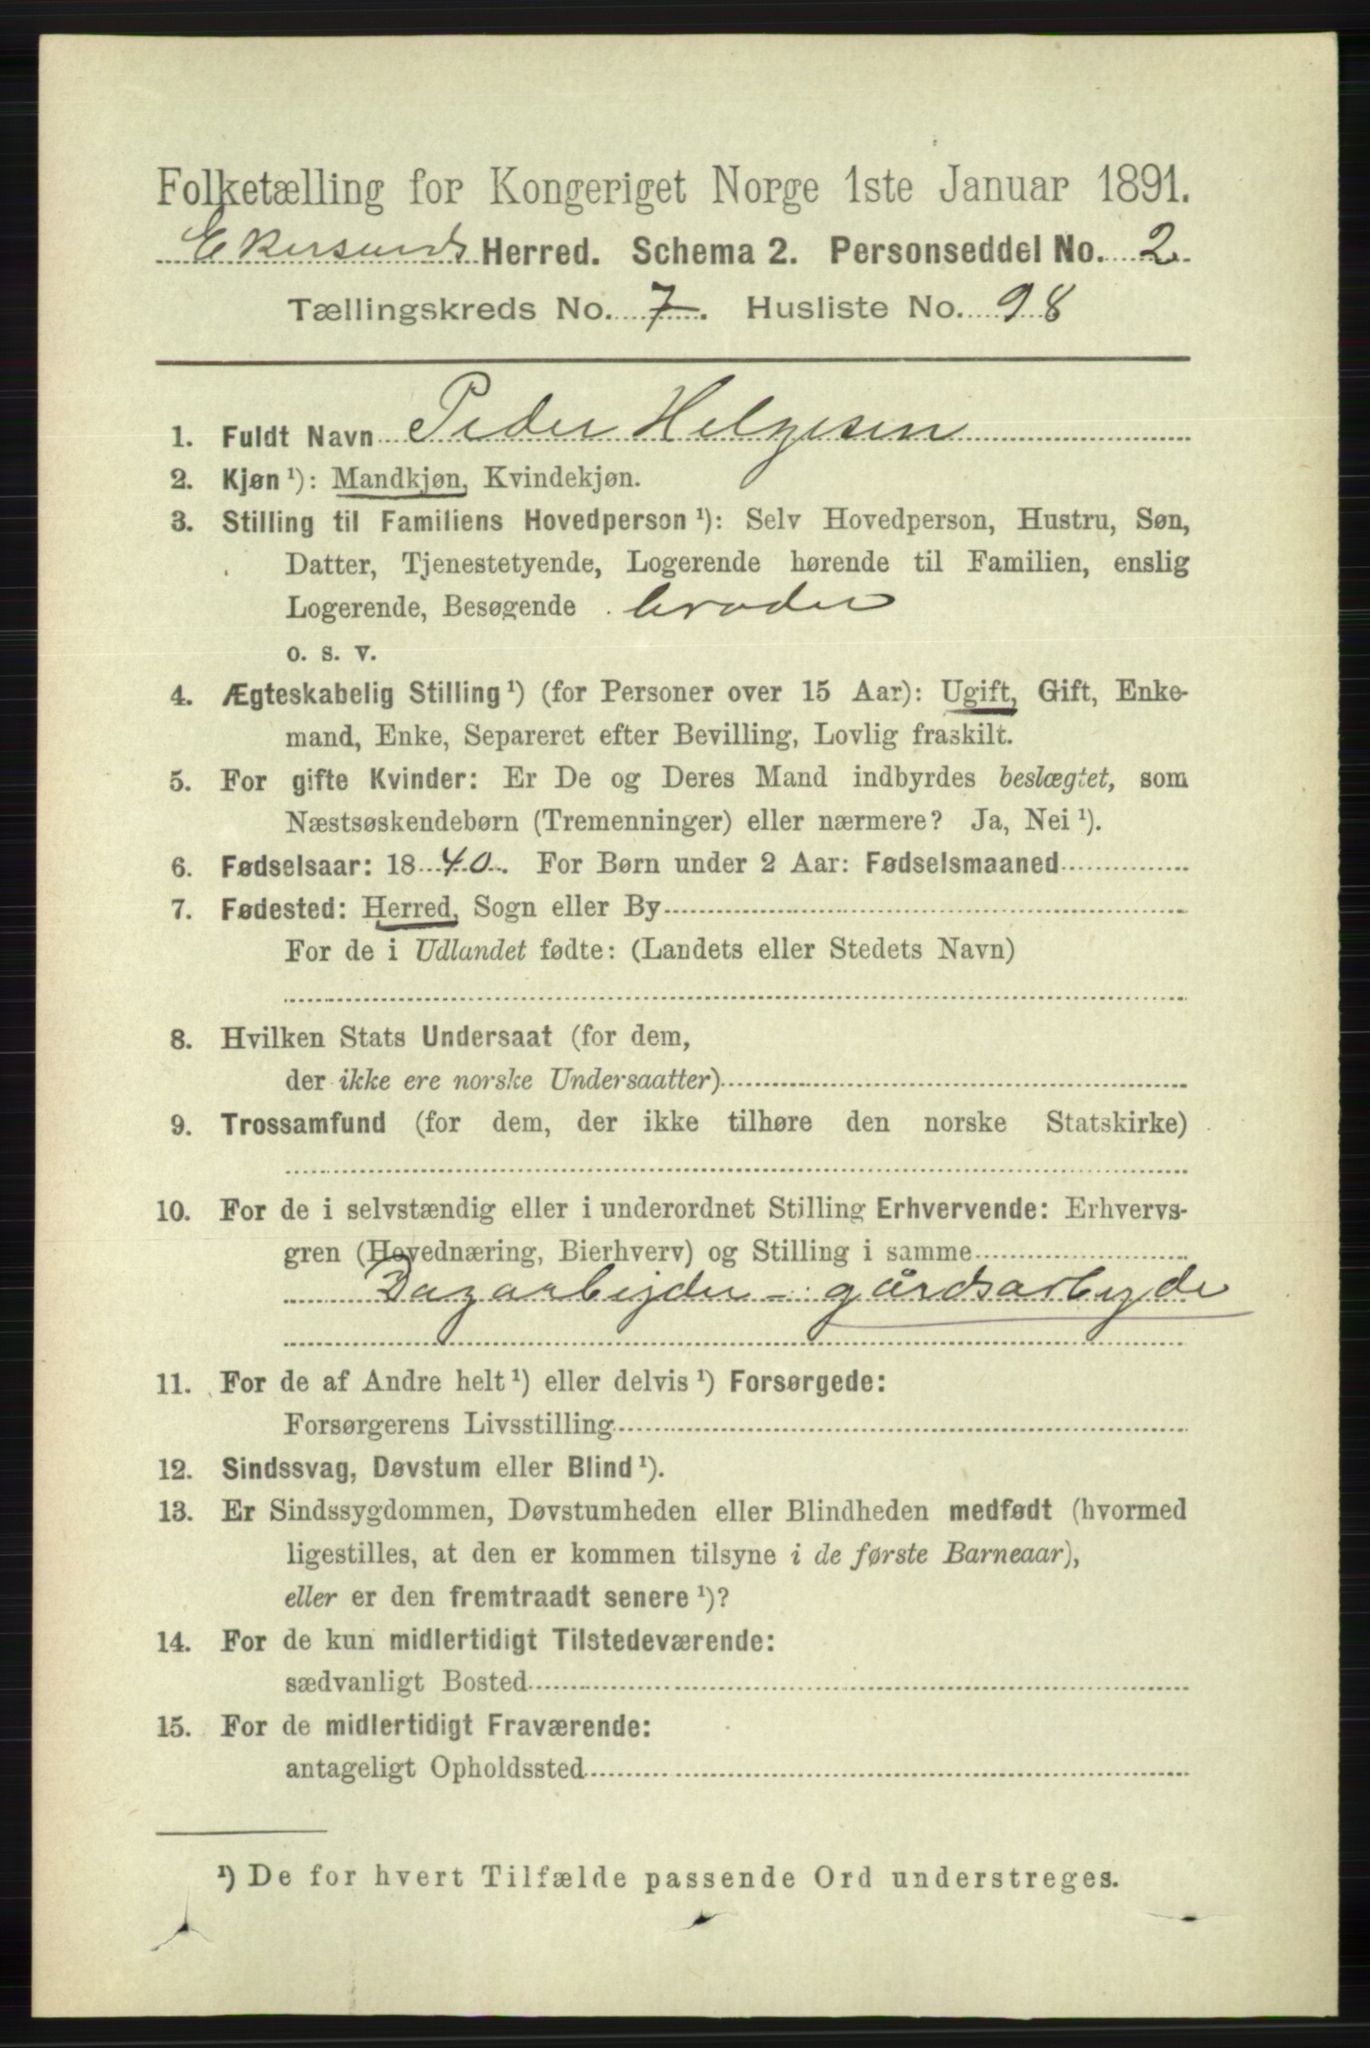 Folketælling for Kongeriget Norge 1ste Januar 1891.
Ekersunds Herred. Schema 2. Personseddel No. 2.
Tællingskreds No. 7. Husliste No. 98
1. Fuldt Navn Peder Helgesen
2. Kjøn ¹): Mandkjøn, Kvindekjøn.
3. Stilling til Familiens Hovedperson ¹): Selv Hovedperson, Hustru, Søn,
Datter, Tjenestetyende, Logerende hørende til Familien, enslig
Logerende, Besøgende broder
o. s. v.
4. Ægteskabelig Stilling ¹) (for Personer over 15 Aar): Ugift, Gift, Enke-
mand, Enke, Separeret efter Bevilling, Lovlig fraskilt.
5. For gifte Kvinder: Er De og Deres Mand indbyrdes beslægtet, som
Næstsøskendebørn (Tremenninger) eller nærmere? Ja, Nei ¹).
6. Fødselsaar: 1840. For Børn under 2 Aar: Fødselsmaaned
7. Fødested: Herred, Sogn eller By
For de i Udlandet fødte: (Landets eller Stedets Navn)
8. Hvilken Stats Undersaat (for dem,
der ikke ere norske Undersaatter)
9. Trossamfund (for dem, der ikke tilhøre den norske Statskirke)
10. For de i selvstændig eller i underordnet Stilling Erhvervende: Erhvervs-
gren (Hovednæring, Bierhverv) og Stilling i samme
Dagarbejder - gårdsarbejde
11. For de af Andre helt ¹) eller delvis ¹) Forsørgede:
Forsørgerens Livsstilling
12. Sindssvag, Døvstum eller Blind ¹).
13. Er Sindssygdommen, Døvstumheden eller Blindheden medfødt (hvormed
ligestilles, at den er kommen tilsyne i de første Barneaar),
eller er den fremtraadt senere ¹)?
14. For de kun midlertidigt Tilstedeværende:
sædvanligt Bosted
15. For de midlertidigt Fraværende:
antageligt Opholdssted
¹) De for hvert Tilfælde passende Ord understreges.